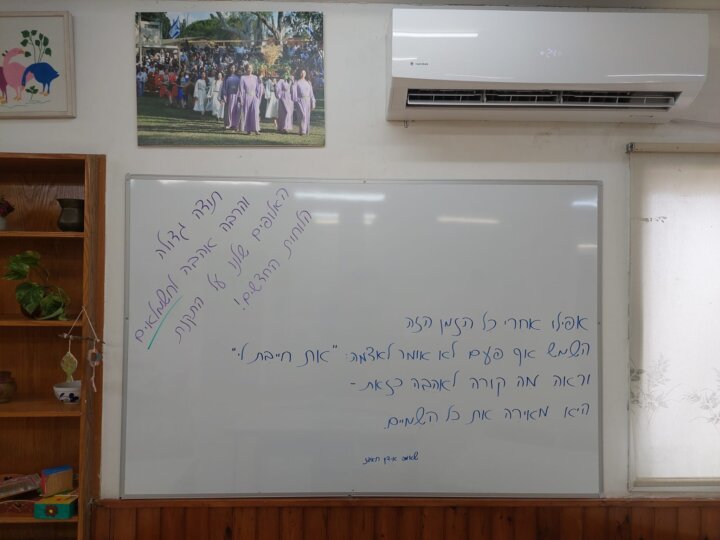 תודה גדולה
והרבה אהבה לחשמלאים
האלופים שלנו על התקנת
הלוחות החדשים!
אפילו אחרי כל הזמן הזה
השמש אף פעם לא אומר לאדמה: "את חייבת לי"
וראה מה קורה לאהבה כזאת -
היא מאירה את כל השמיים.